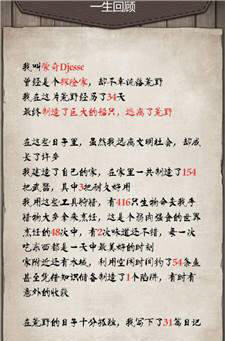 一生回顾
我叫蒙奇Djesse
曾经是个探险家，却不幸流落荒野
我在这片荒野经历了34天
最终制造了巨大的船只，逃离了荒野
在这些日子里，虽然我远离文明社会，却成
长了许多
我建造了自己的家，在家里一共制造了154
把武器，其中3把耐久好用
我用这些工具狩猎，有416只生物命丧我手
猎物大多拿来烹饪，这是个弱肉强食的世界
烹饪的48次中，有2次味道还不错，每一次
吃东西都是一天中最美好的时刻
家附近还有水域，利用空闲时间钓了54条鱼
甚至凭借知识储备制造了1个陷阱，有时有
意外的收获
在荒野的日子十分孤独，我写下了31篇日记